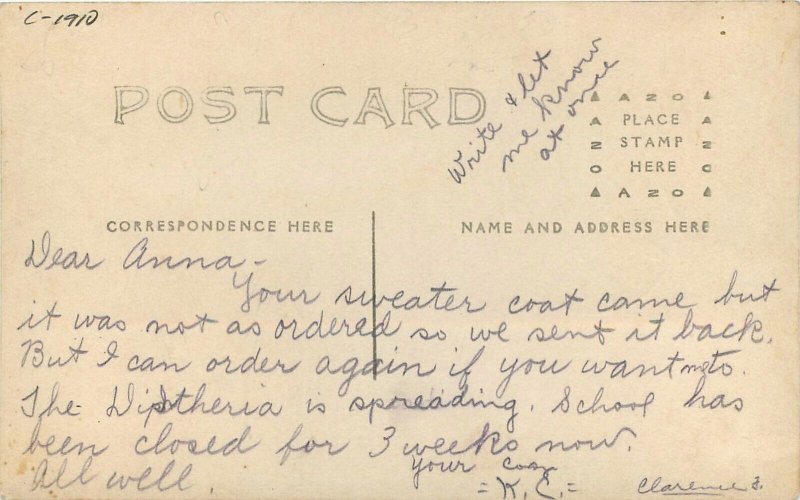 C-1910
POST CARD
Write & let
me know
at once
AZO
PLACE
STAMP
HERE
AZO
CORRESPONDENCE HERE
NAME AND ADDRESS HERE
Dear Anna-
Your sweater coat came but
it was not as ordered so we sent it back.
But I can order again if you want me to.
The Diptheria is spreading. School has
been closed for 3 weeks now.
All well.
Your Coz
=K. C.=
Clarence